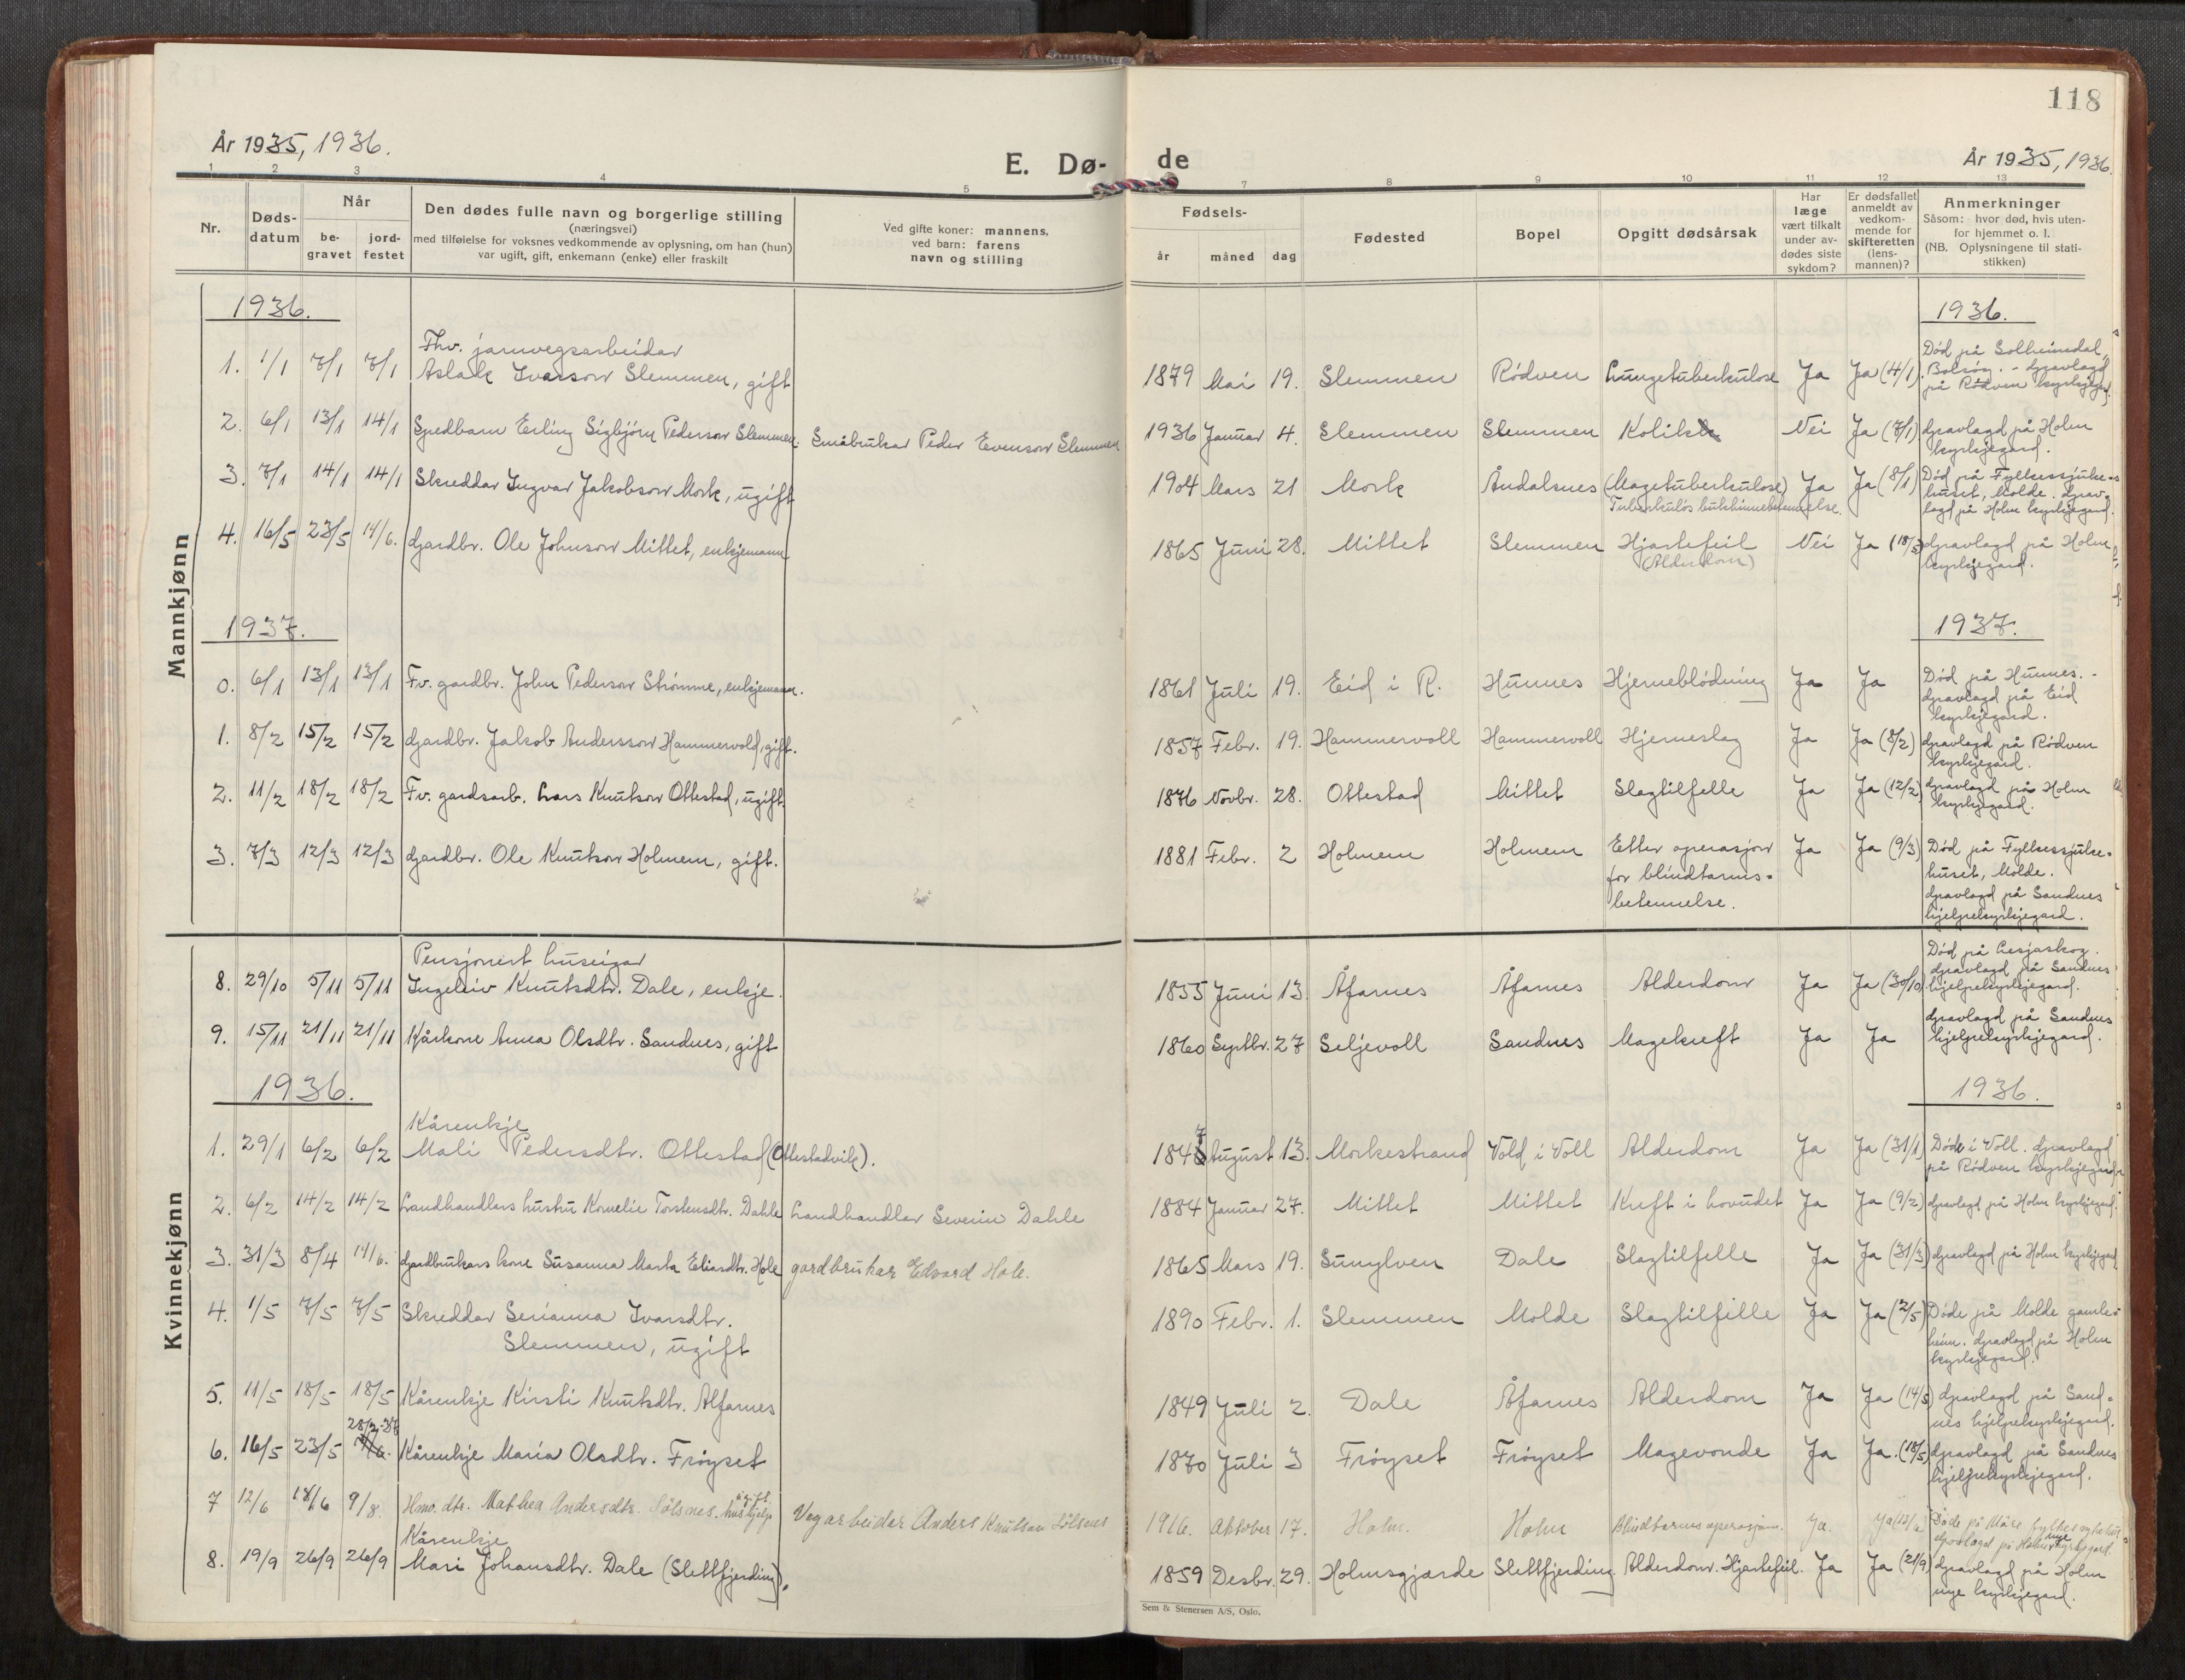 118
År 1935, 1936.
E. Dø-
de
År 1935, 1936.
1 2 3 4 5 7 8 9 10 11 12 13
Nr.
Døds-
datum
Når
be-
gravet
jord-
festet
Den dødes fulle navn og borgerlige stilling
(næringsvei)
med tilføielse for voksnes vedkommende av oplysning, om han (hun)
var ugift, gift, enkemann (enke) eller fraskilt
Ved gifte koner: mannens,
ved barn: farens
navn og stilling
Fødsels-
år måned dag
Fødested
Bopel
Opgitt dødsårsak
Har
læge
vært tilkalt
under av-
dødes siste
sykdom?
Er dødsfallet
anmeldt av
vedkom-
mende for
skifteretten
(lens-
mannen)?
Anmerkninger
Såsom: hvor død, hvis uten-
for hjemmet o. l.
(NB. Oplysningene til stati-
stikken)
Mannkjønn
1936. 1936.
Fhv. jarnvegsarbeidar Død på Solheimsdal,
1. 1/1 7/1 7/1 Aslak Ivarson Slemmen, gift 1879 Mai 19. Slemmen Rødven Lungetuberkulose Ja Ja (4/1) Bolsøy. - Gravlagd
på Rødven kyrkjegard.
2. 6/1 13/1 14/1 Spedbarn Erling Sigbjørn Pederson Slemmen. Småbrukar Peder Evenson Slemmen 1936 Januar 4. Slemmen Slemmen Kolikk Nei Ja (7/1) Gravlagd på Holm
kyrkjegard.
3. 7/1 14/1 14/1 Skreddar Ingvar Jakobson Mork, ugift 1904 Mars 21 Mork Åndalsnes (Magetuberkulose) Ja Ja (8/1) Død på Fylkessjuke-
Tuberkuløs bukhinnebetennelse. huset, Molde. Grav-
lagd på Holm kyrkjegard.
4. 16/5 23/5 14/6. Gardbr. Ole Johnson Mittet, enkjemann 1865 Juni 28. Mittet Slemmen Hjartefeil Nei Ja (18/5) Gravlagd på Holm
(Alderdom) kyrkjegard.
1937. 1937.
0. 6/1 13/1 13/1 Fv. gardbr. John Pederson Strømme, enkjemann. 1861 Juli 19. Eid i R. Hunnes Hjerneblødning Ja Ja Død på Hunnes. -
Gravlagd på Eid
kyrkjegard.
1. 8/2 15/2 15/2 Gardbr. Jakob Andersson Hammervold, gift. 1857 Febr. 19. Hammervoll Hammervoll Hjerneslag Ja Ja (8/2) Gravlagd på Rødven
kyrkjegard.
2. 11/2 18/2 18/2 Fv. gardsarb. Lars Knutson Ottestad, ugift. 1876 Novbr. 28. Ottestad Mittet Slagtilfelle Ja Ja (12/2) Gravlagd på Holm
kyrkjegard.
3. 7/3 12/3 12/3 Gardbr. Ole Knutson Holmem, gift. 1881 Febr. 2 Holmem Holmem Etter operasjon Ja Ja (9/3) Død på Fylkessjuke-
for blindtarms- huset, Molde.
betennelse. Gravlagd på Sandnes
hjelpekyrkjegard.
Kvinnekjønn
Pensjonert huseigar Død på Lesjaskog.
8. 29/10 5/11 5/11 Ingeleiv Knutsdtr. Dale, enkje. 1855 Juni 13. Åfarnes Åfarnes Alderdom Ja Ja (30/10) Gravlagd på Sandnes
hjelpekyrkjegard.
9. 15/11 21/11 21/11 Kårkone Anna Olsdtr. Sandnes, gift 1860 Septbr. 27 Seljevoll Sandnes Magekreft Ja Ja Gravlagd på Sandnes
hjelpekyrkjegard.
1936. 1936.
Kårenkje
1. 29/1 6/2 6/2 Mali Pedersdtr. Ottestad (Ottestadvik). 1847 August 13. Morkestrand Vold i Voll Alderdom Ja Ja (31/1) Døde i Voll. Gravlagd
på Rødven kyrkjegard.
2. 6/2 14/2 14/2 Landhandlars hustru Kornelie Torstensdtr. Dahle Landhandlar Severin Dahle 1884 Januar 27. Mittet Mittet Kreft i hovudet Ja Ja (9/2) Gravlagd på Holm kyrkjegard.
3. 31/3 8/4 14/6. Gardbrukars kone Susanna Marta Eliasdtr. Hole gardbrukar Edvard Hole. 1865 Mars 19. Sunylven Dale Slagtilfelle Ja Ja (31/3) Gravlagd på Holm kyrkjegard
4. 1/5 7/5 7/5 Skreddar Serianna Ivarsdtr. 1890 Febr. 1. Slemmen Molde Slagtilfelle Ja Ja (2/5) Døde på Molde gamle-
Slemmen, ugift heim. Gravlagd på Holm
kyrkjegard.
5. 11/5 18/5 18/5 Kårenkje Kirsti Knutsdtr. Alfarnes 1849 Juli 2. Dale Åfarnes Alderdom Ja Ja (14/5) Gravlagd på Sand-
nes hjelpekyrkjegard.
28/2-37
6. 16/5 23/5 14/6. Kårenkje Maria Olsdtr. Frøyset 1870 Juli 3 Frøyset Frøyset Magevonde Ja Ja. (18/5) Gravlagd på Sandnes
hjelpekyrkjegard.
ugift
7 12/6 18/6 9/8. Hmo. dtr. Mathea Andersdtr. Sølsnes. hushjelp Vegarbeider Anders Knutsen Sølsnes 1916. Oktober 17. Holm. Holm Blindtarmsoperasjon. Ja. Ja (12/6) Døde på Møre fylkes sykehus
nye
gravlagd på Holm kyrkjegard.
Kårenkje
8. 19/9 26/9 26/9 Mari Johansdtr. Dale (Slettfjerding). 1859 Desbr. 29. Holmsgjærde Slettfjerding Alderdom. Hjartefeil. Ja Ja (21/9) Gravlagd på Holm
nye kyrkjegard.
Sem & Stenersen A/S, Oslo.